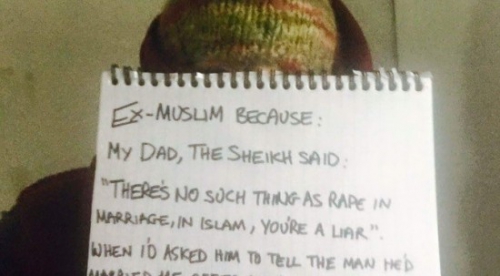 EX-MUSLIM BECAUSE:
MY DAD, THE SHEIKH SAID:
"THERE'S NO SUCH THING AS RAPE IN
MARRIAGE, IN ISLAM, YOU'RE A LIAR".
WHEN I'D ASKED HIM TO TELL THE MAN HE'D
MARRIED ME